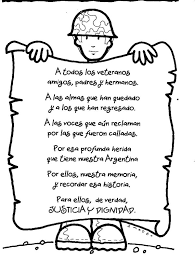 A todos los veteranos
amigos, padres y hermanos.
A las almas que han quedado
y a los que han regresado.
A las voces que aún reclaman
por las que fueron calladas.
Por esa profunda herida
que tiene nuestra Argentina
Por ellos, nuestra memoria,
y recordar esa historia.
Para ellos, de verdad,
JUSTICIA Y DIGNIDAD.